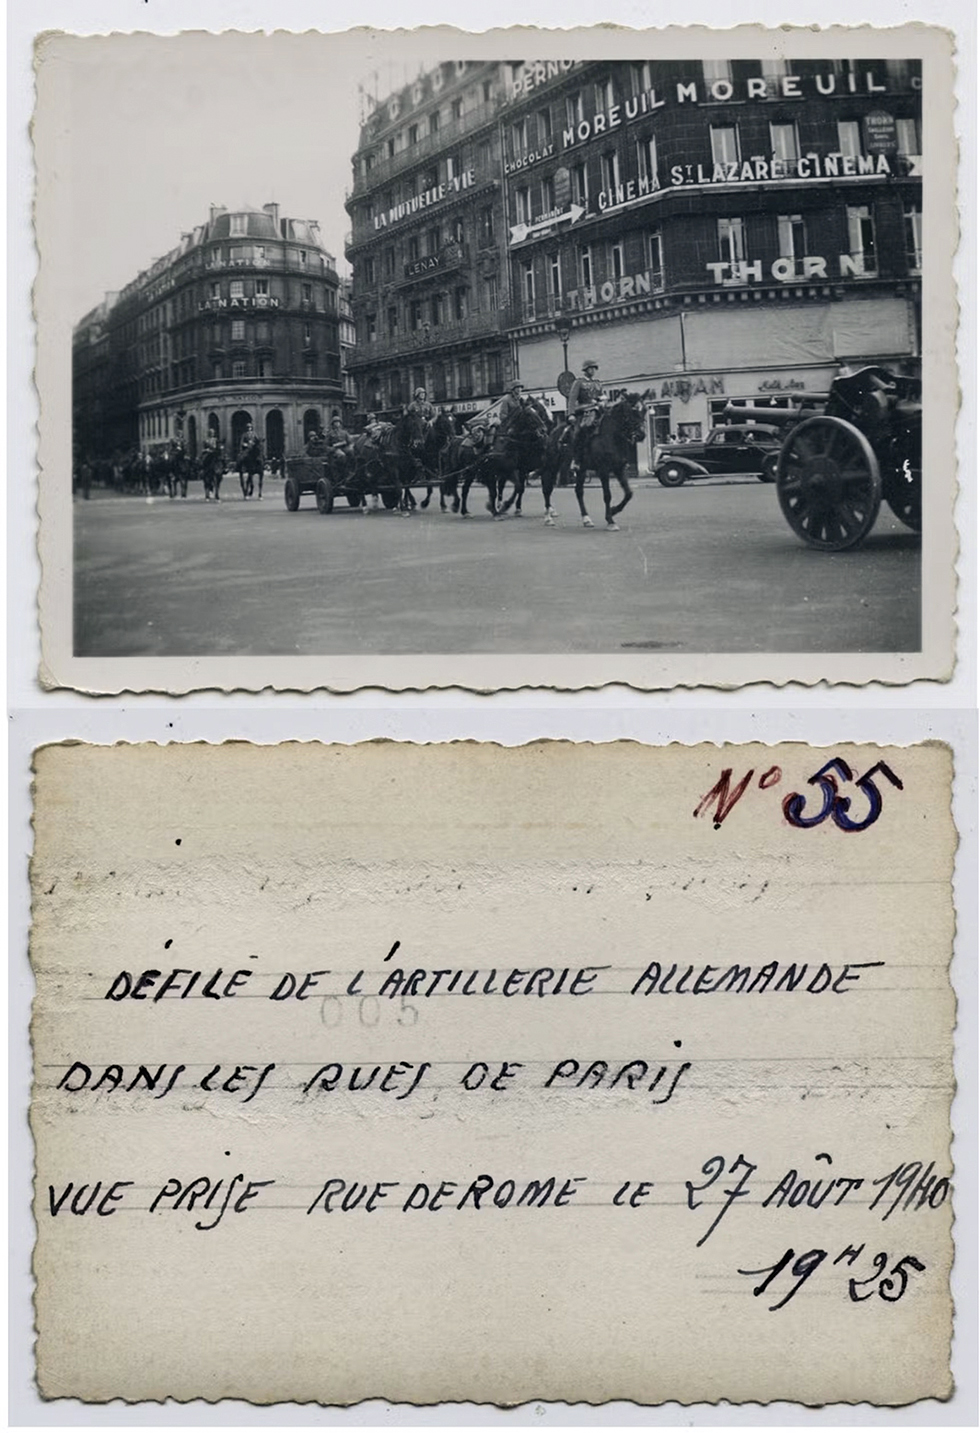 PERNOD
MOREUIL
CHOCOLAT MOREUIL
THORN
LA MUTUELLE-VIE
CINEMA ST LAZARE CINEMA
PERMANENT
LENAY
LA NATION
LA NATION
THORN
THORN
N° 55
DÉFILÉ DE L'ARTILLERIE ALLEMANDE
005
DANS LES RUES DE PARIS
VUE PRISE RUE DE ROME LE 27 AOÛT 1940
19H25